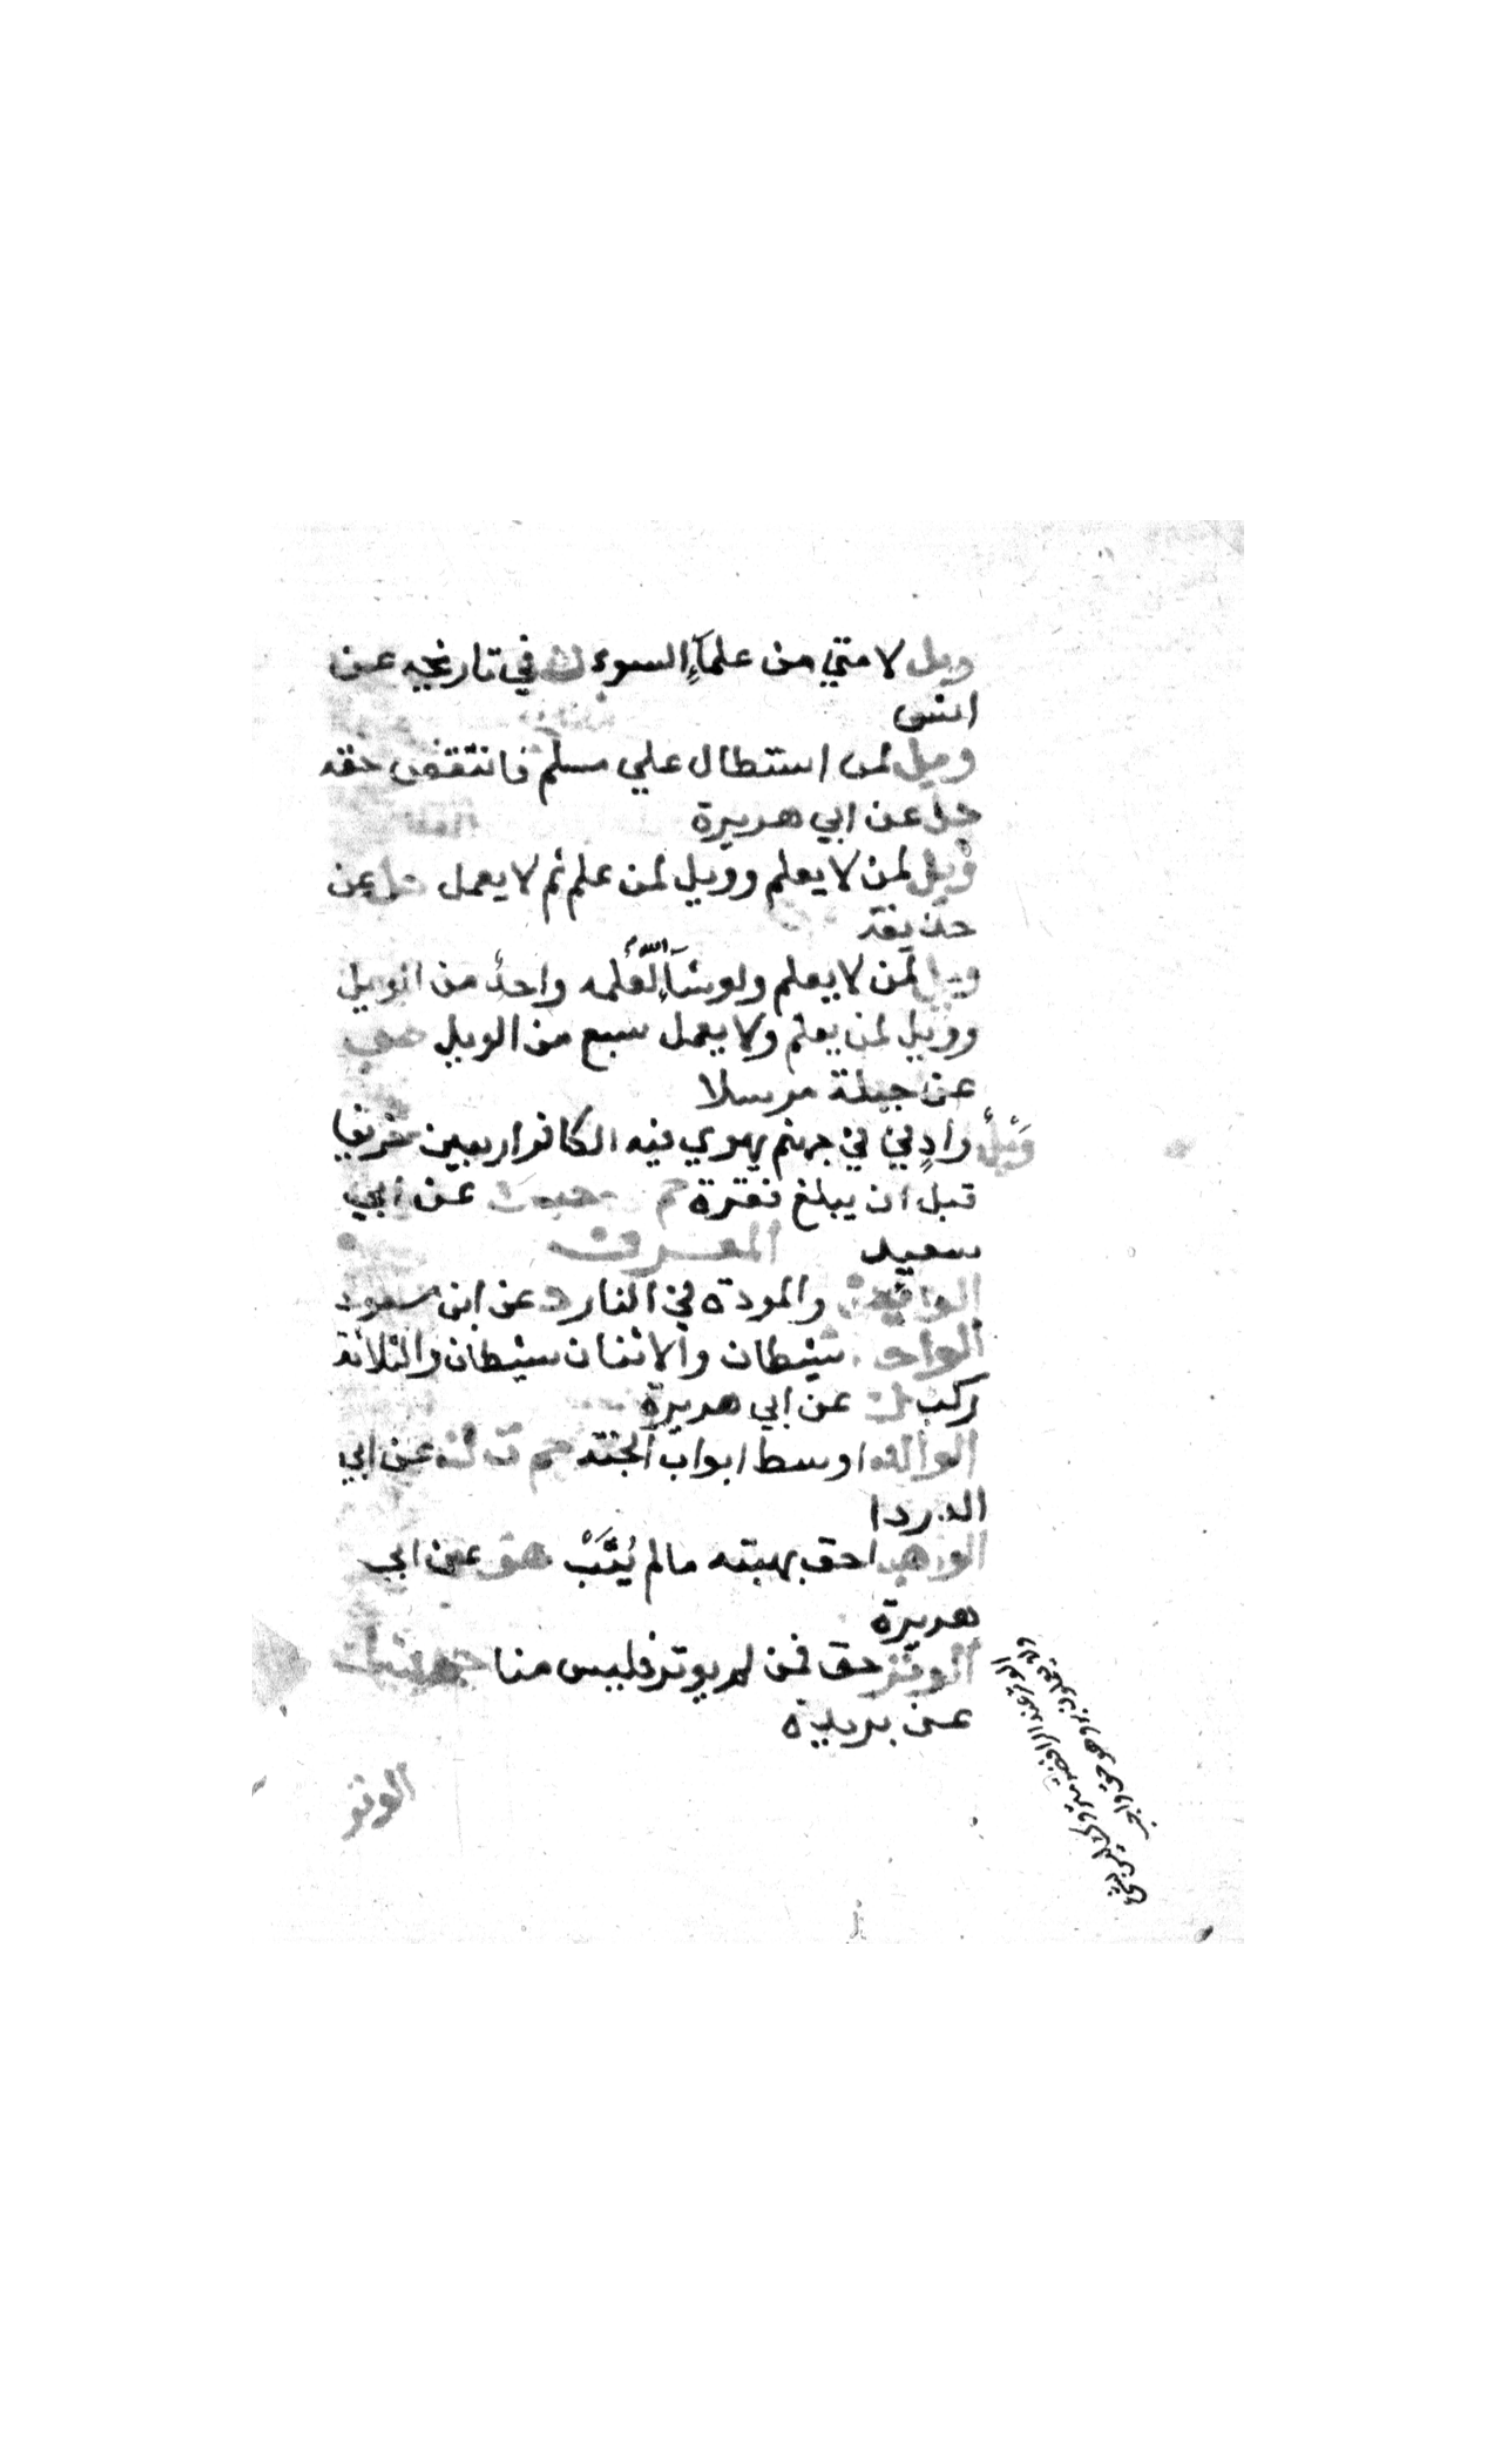 ويل لامتي من علمآءِ السوء ك في تاريخه عن
انس
ويل لمن استطال علي مسلم فانتقص حقه
حل عن ابي هريرة
ويل لمن لا يعلم وويل لمن علم ثم لا يعمل حل عن
حذيفة
ويل لمن لا يعلم ولو شآءَ اللّهُ لَعُلمه واحدٌ من الويل
وويل لمن يعلم ولا يعمل سبع من الويل ص
عن جبلة مرسلا
وَيْلٌ وادٍ في في جهنم يهوي فيه الكافر اربعين خريفا
قبل ان يبلغ نعترة حم حب ك عن ابي
سعيد المعرف
الوائدة والمودة في النار د عن ابن مسعود
الواحد شيطان والاثنان شيطان والثلاثة
ركب ك عن ابي هريرة
الوالد اوسط ابواب الجنة حم ت ك عن ابي
الدردا
الواهب احق بهبته مالم يُثَبْ هق عن ابي
هريرة
الوتر حق فمن لم يوتر فليس منا حم د ك
عن بريدة
الوتر